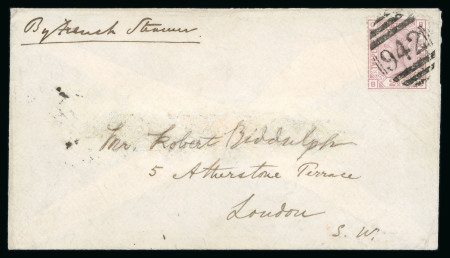 By French Steamer
942
Mr. Robert Biddulph
5 Atherstone Terrace
London
S. W.